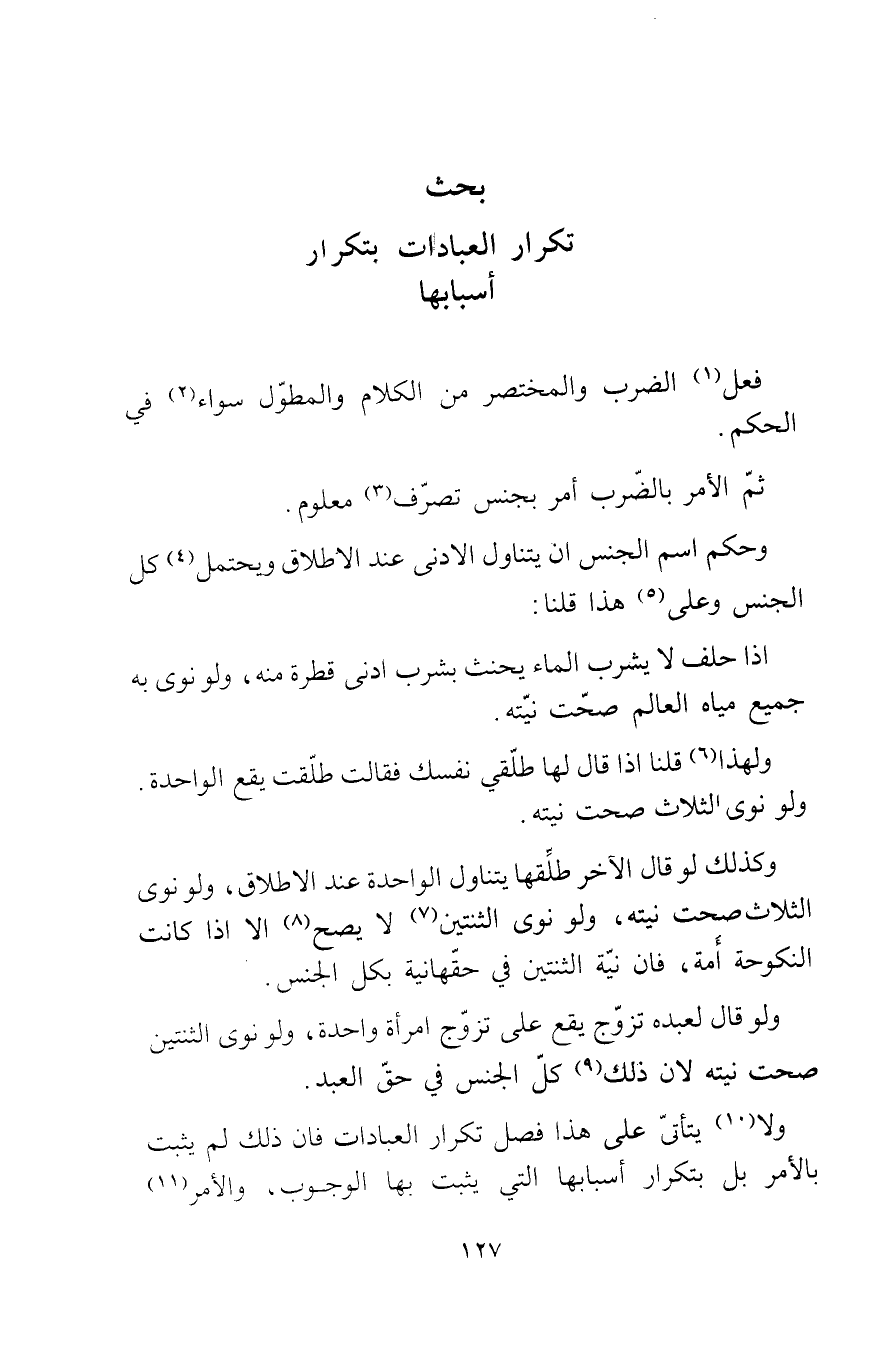 بحث
تكرار العبادات بتكرار
أسبابها
فعل(١) الضرب والمختصر من الكلام والمطوّل سواء(٢) في
الحكم.
ثمّ الأمر بالضّرب أمر بجنس تصرّف(٣) معلوم.
وحكم اسم الجنس ان يتناول الادنى عند الاطلاق ويحتمل(٤) كل
الجنس وعلى(٥) هذا قلنا:
اذا حلف لا يشرب الماء يحنث بشرب ادنى قطرة منه، ولو نوى به
جميع مياه العالم صحّت نيّته.
ولهذا(٦) قلنا اذا قال لها طلّقي نفسك فقالت طلّقت يقع الواحدة.
ولو نوى الثلاث صحت نيته.
وكذلك لو قال الآخر طلِّقها يتناول الواحدة عند الاطلاق، ولو نوى
الثلاث صحت نيته، ولو نوى الثنتين(٧) لا يصح(٨) الا اذا كانت
النكوحة أَمة، فان نيّة الثنتين في حقّهانية بكل الجنس.
ولو قال لعبده تزوّج يقع على تزوّج امرأة واحدة، ولو نوى الثنتين
صحت نيته لان ذلك(٩) كلّ الجنس في حقّ العبد.
ولا(١٠) يتأتىّ على هذا فصل تكرار العبادات فان ذلك لم يثبت
بالأمر بل بتكرار أسبابها التي يثبت بها الوجوب، والأمر(١١)
١٢٧